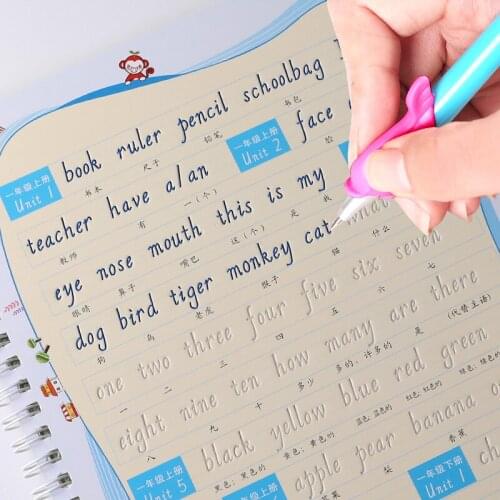 一年级上册 Unit 1 book ruler pencil schoolbag
书本 尺子 铅笔 书包
teacher have a/an 一年级上册 Unit 2 face
教师 有 一(个) 脸
eye nose mouth this is my
眼睛 鼻子 嘴巴 这(个) 是 我
dog bird tiger monkey cat what
狗 鸟 老虎 猴子 猫 什么
one two three four five six seven
一 二 三 四 五 六 七
eight nine ten how many are there
八 九 十 多少 多的,许多的 是 (代替主语)
一年级上册 Unit 5 black yellow blue red green
黑色;黑色的 黄色;黄色的 蓝色;蓝色的 红色;红色的 绿色;绿色的
apple pear banana
苹果 梨 香蕉
一年级下册 Unit 1